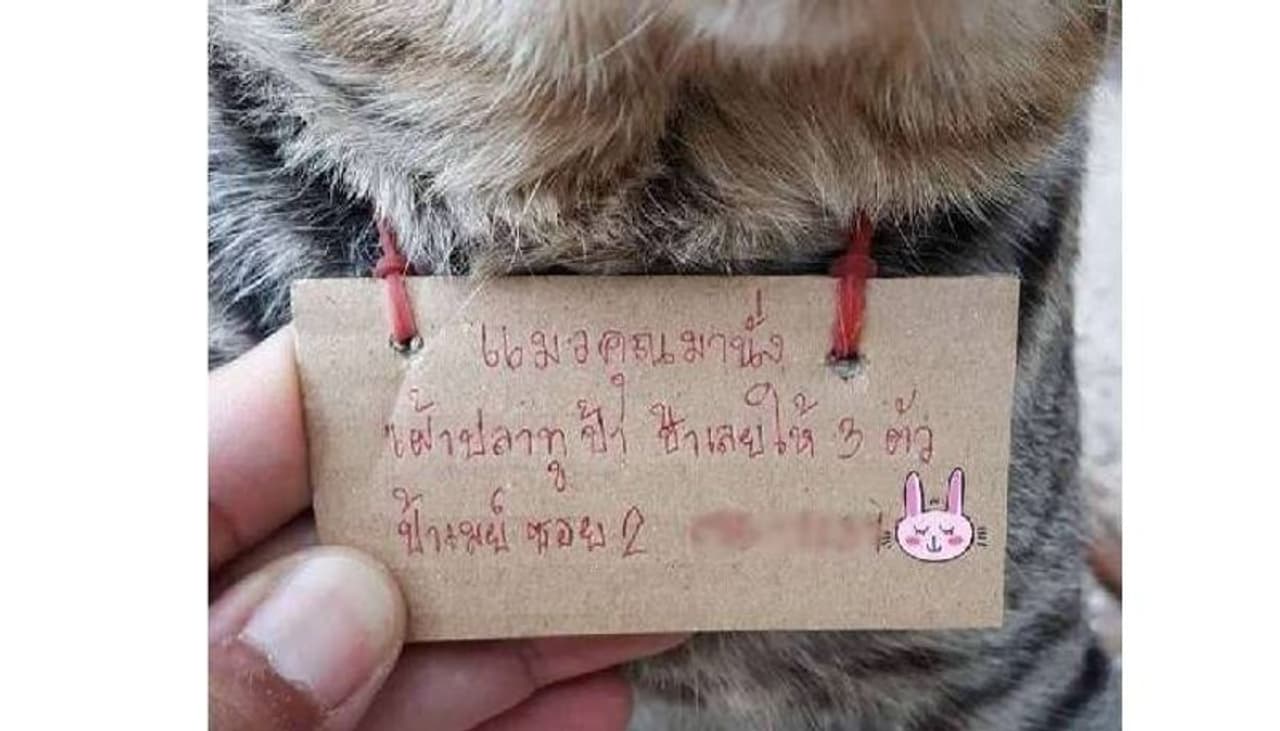 แมวคุณมานั่ง
เฝ้าปลาทูป้า ป้าเลยให้ 3 ตัว
ป้าเมย์ ซอย 2